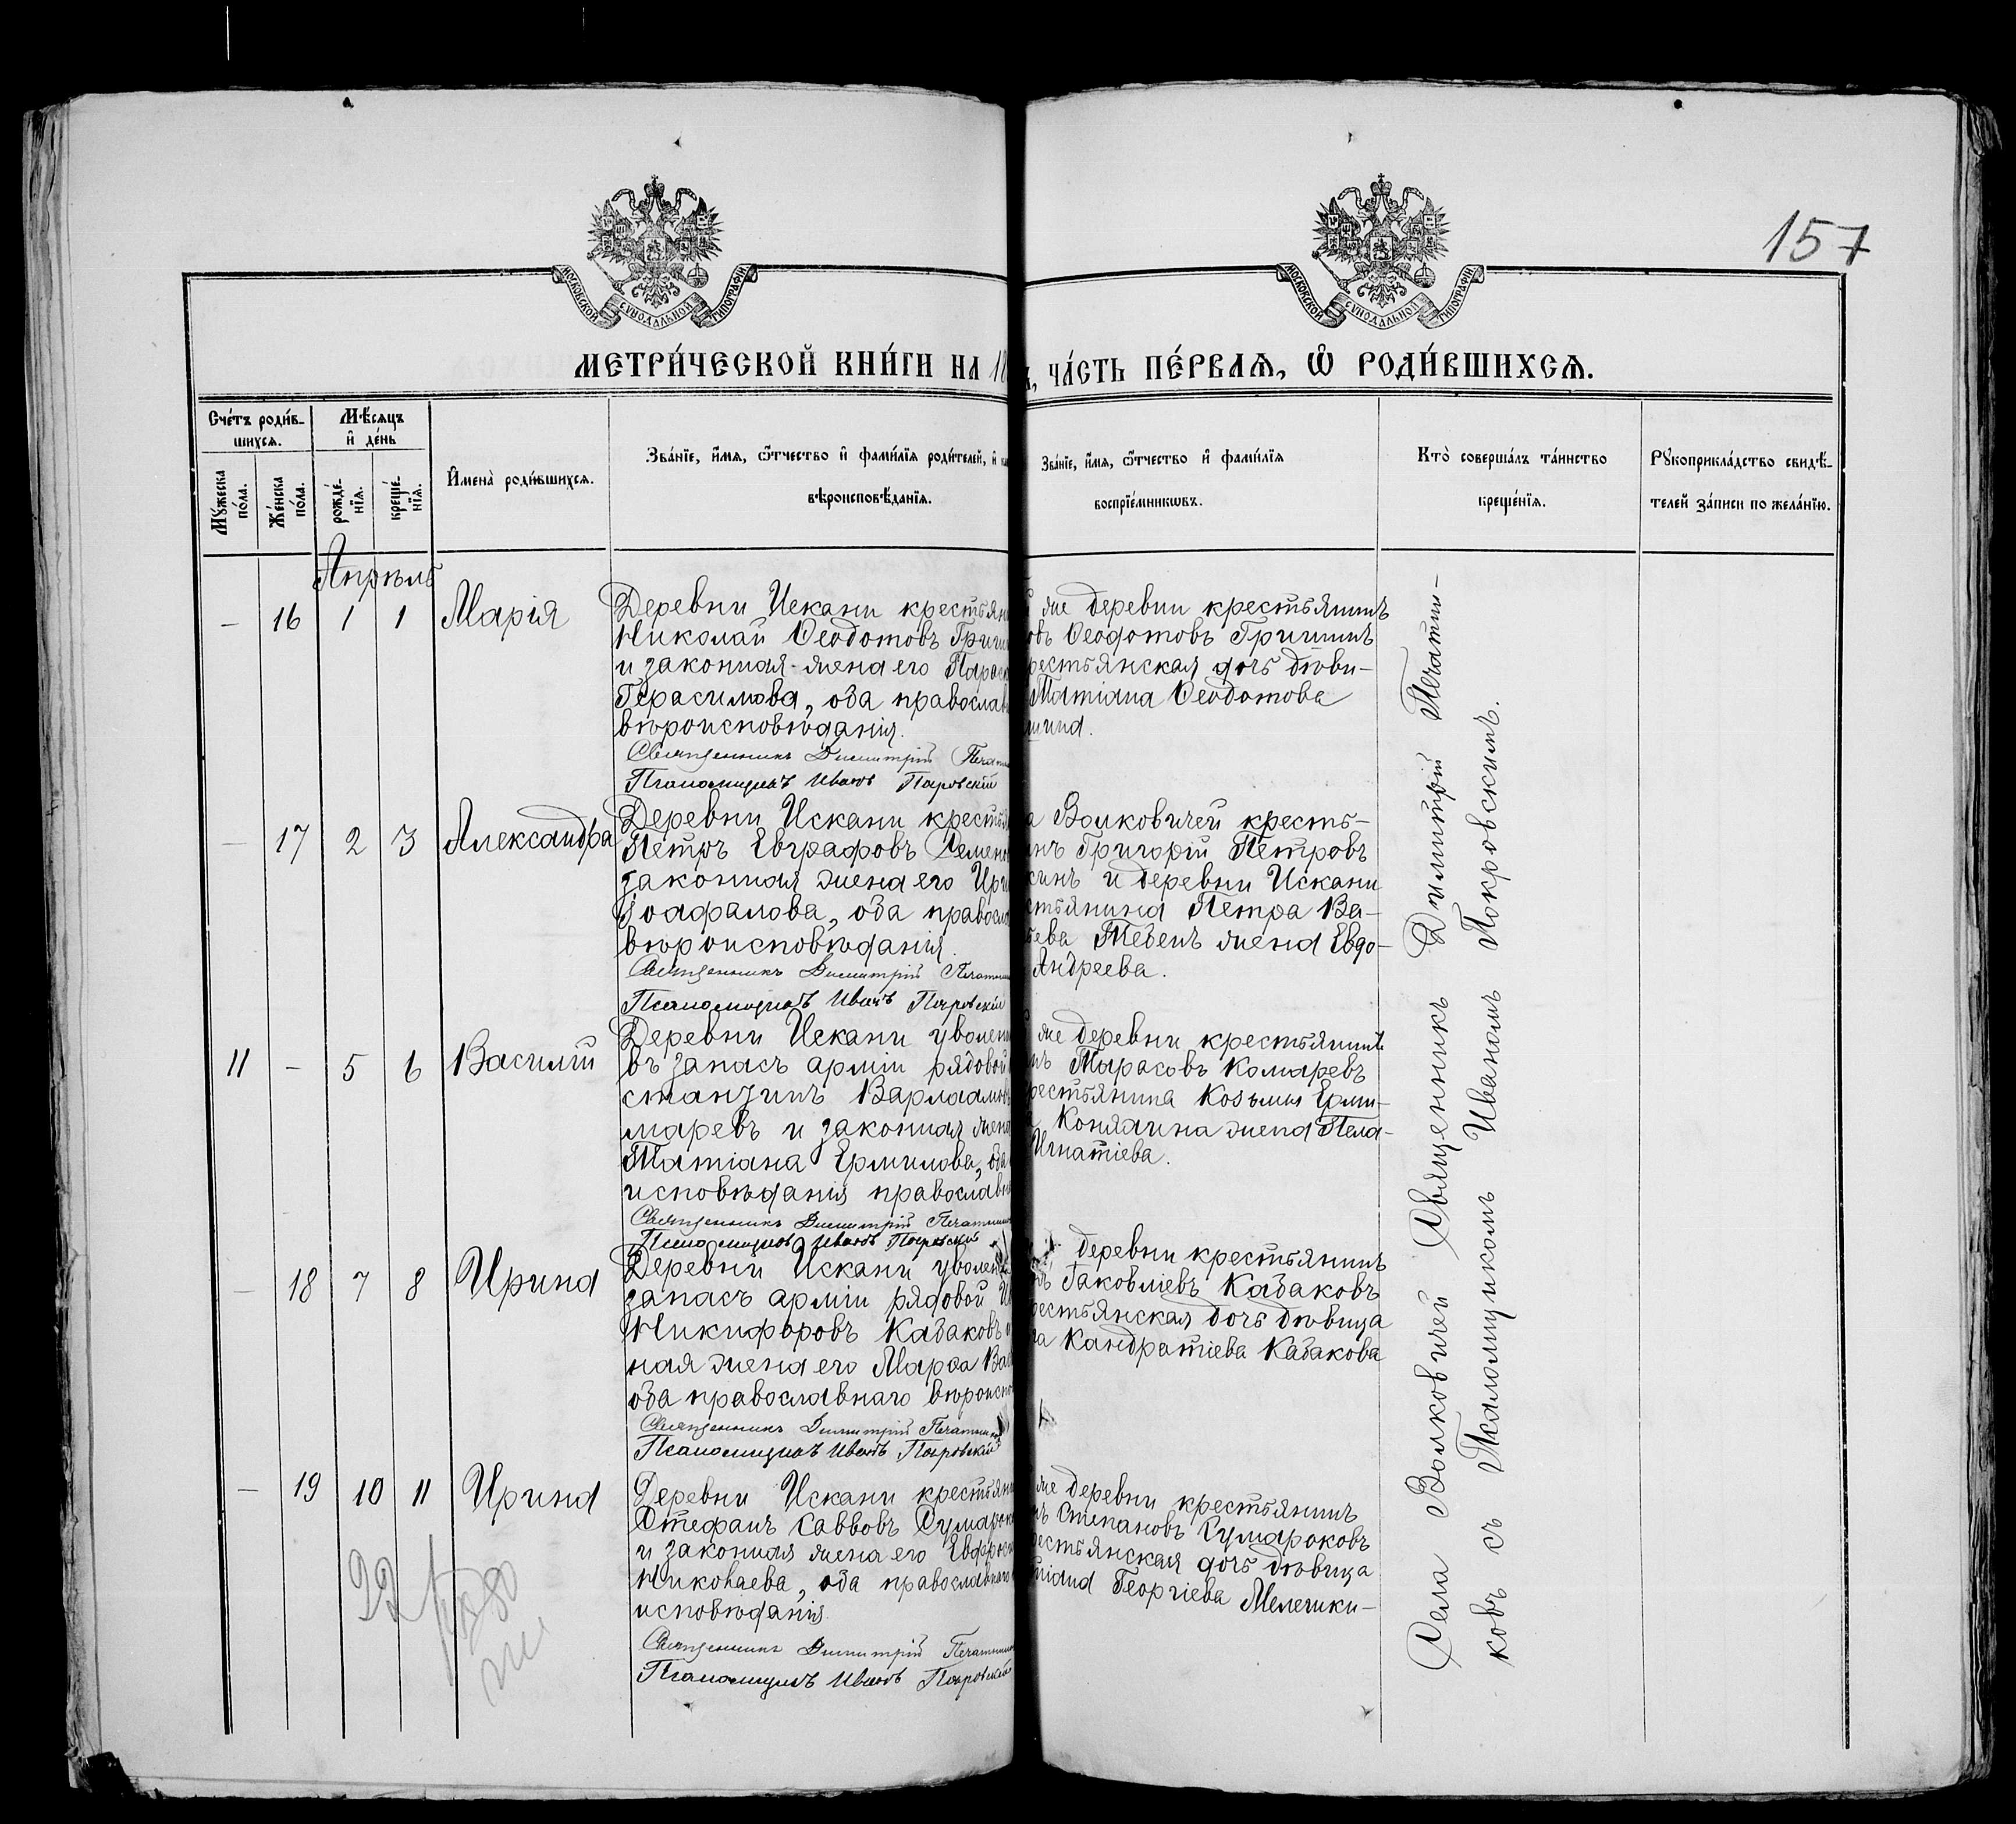 157
МОСКОВСКОЙ СУНОДАЛЬНОЙ ТИПОГРАФІИ
МОСКОВСКОЙ СУНОДАЛЬНОЙ ТИПОГРАФІИ
МЕТРИ́ЧЕСКОЙ КНИ́ГИ НА 18
ЧА́СТЬ ПЕ́РВАЯ, Ѽ РОДИ́ВШИХСЯ.
Сче́тъ роди́в-
шихся.
Мѣ́сяцъ
и҆ де́нь
Мꙋ́жеска
по́ла.
Же́нска
по́ла.
рожде́-
нїя.
креще́-
нїя.
И҆мена̀ роди́вшихся.
Зва́нїе, и҆́мя, ѻ҆́тчество и҆ фами́лїя роди́телей, и҆
вѣроисповѣ́данїя.
Зва́нїе, и҆́мя, ѻ҆́тчество и҆ фами́лїя
воспрїе́мникѡвъ.
Кто̀ соверша́лъ та́инство
креще́нїя.
Рꙋкоприкла́дство свидѣ́-
телей за́писи по жела́нїю.
Апрѣль
– 16 1 1 Марія
Деревни Искани крестьян
Николай Ѳеодотовъ Гриш
и законная жена его Парас
Герасимова, оба православ
вѣроисповѣданія.
Священникъ Димитрій Печат
Псаломщикъ Иванъ Покровскій
же деревни крестьянинъ
овъ Ѳеодотовъ Гришинъ
рестьянская дочь дѣви-
Татіана Ѳеодотова
шина.
– 17 2 3 Александра
Деревни Искани крестья
Петръ Евграфовъ Семен
законная жена его Ири
Іоафалова, оба правосла
вѣроисповѣданія.
Священникъ Димитрій Печатни
Псаломщикъ Иванъ Покровскій
а Волковичей кресть-
инъ Григорій Петровъ
кинъ и деревни Искани
стьянина Петра Ва-
ьева Тебенъ жена Евдо-
Андреева.
11 – 5 6 Василій
Деревни Искани уволен
въ запасъ арміи рядовой
станзинъ Варлаамов
маревъ и законная жена
Татіана Ермилова, оба
исповѣданія православн
Священникъ Димитрій Печатник
Псаломщикъ Иванъ Покровскій
же деревни крестьянинъ
нъ Тарасовъ Комаревъ
рестьянина Козьмы Ерми-
Коняхина жена Пела-
Игнатіева.
– 18 7 8 Ирина
Деревни Искани уволен
запасъ арміи рядовой И
Никифоровъ Кабаковъ и
ная жена его Марѳа Вас
оба православнаго вѣроиспо
Священникъ Димитрій Печатник
Псаломщикъ Иванъ Покровскій
деревни крестьянинъ
Іаковлевъ Кабаковъ
рестьянская дочь дѣвица
на Кандратіева Кабакова
– 19 10 11 Ирина
Деревни Искани крестьяни
Стефанъ Саввовъ Сумароко
и законная жена его Евфрос
Николаева, оба православнаго
исповѣданія.
Священникъ Димитрій Печатник
Псаломщикъ Иванъ Покровскій
же деревни крестьянинъ
нъ Степановъ Сумароковъ
рестьянская дочь дѣвица
тіана Георгіева Мелечики-
Села Волковичей Священникъ Димитрій Печатни-
ковъ съ Псаломщикомъ Иваномъ Покровскимъ.
22